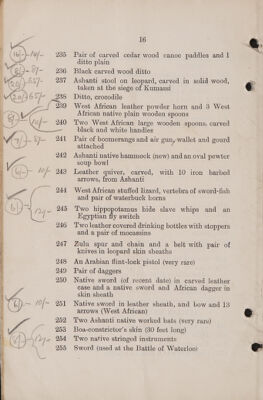 16
235 Pair of carved cedar wood canoe paddles and 1
ditto plain
236 Black carved wood ditto
237 Ashanti stool on leopard, carved in solid wood,
taken at the siege of Kumassi
238 Ditto, crocodile
239 West African leather powder horn and 3 West
African native plain wooden spoons
240 Two West African large wooden spoons, carved
black and white handles
241 Pair of boomerangs and air gun, wallet and gourd
attached
242 Ashanti native hammock (new) and an oval pewter
soup bowl
243 Leather quiver, carved, with 10 iron barbed
arrows, from Ashanti
244 West African stuffed lizard, vertebra of sword-fish
and pair of waterbuck horns
245 Two hippopotamus hide slave whips and an
Egyptian fly switch
246 Two leather covered drinking bottles with stoppers
and a pair of mocassins
247 Zulu spur and chain and a belt with pair of
knives in leopard skin sheaths
248 An Arabian flint-lock pistol (very rare)
249 Pair of daggers
250 Native sword (of recent date) in carved leather
case and a native sword and African dagger in
skin sheath
251 Native sword in leather sheath, and bow and 13
arrows (West African)
252 Two Ashanti native worked hats (very rare)
253 Boa-constrictor's skin (30 feet long)
254 Two native stringed instruments
255 Sword (used at the Battle of Waterloo)